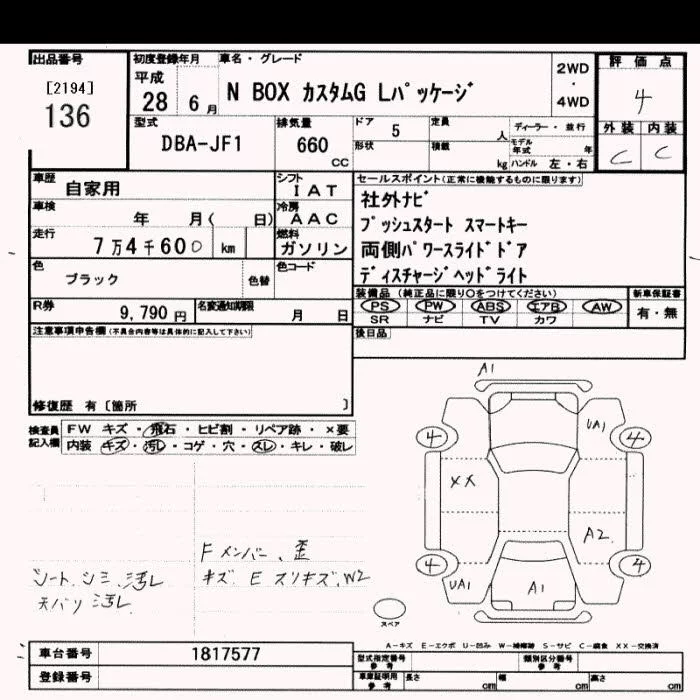 出品番号
[2194]
136
初度登録年月
平成
28 6月
車名・グレード
N BOX カスタムG Lパッケージ
2WD
・
4WD
評価点
4
外装 内装
C C
型式
DBA-JF1
排気量
660
CC
ドア
5
定員
人
形状
積載
kg
ディーラー・並行
モデル年式 年
ハンドル 左・右
車歴
自家用
シフト
IAT
車検
年 月( 日)
冷房
AAC
走行
7万4千600 km
燃料
ガソリン
色
ブラック
色替
色コード
R券
9,790円
名変通知期限
月 日
セールスポイント(正常に機能するものに限ります)
社外ナビ
プッシュスタート スマートキー
両側パワースライドドア
ディスチャージヘッドライト
装備品 (純正品に限り○をつけてください)
PS PW ABS エアB AW
SR ナビ TV カワ
新車保証書
有・無
後日品
注意事項申告欄(不具合内容等は具体的に記入して下さい)
修復歴 有〔箇所 〕
検査員
記入欄
FW キズ・飛石・ヒビ割・リペア跡・×要
内装 キズ・汚レ・コゲ・穴・スレ・キレ・破レ
Fメンバー、歪
キズ E スリキズ、W2
シート、シミ、汚レ
天バリ汚レ
A1
UA1
4 4
XX
A2
4 4
UA1
A1
スペア
A-キズ E-エクボ U-凹み W-補修跡 S-サビ C-腐食 XX-交換済
車台番号
1817577
登録番号
型式指定番号
参考
類別区分番号
参考
車庫証明用
参考
長さ cm 幅 cm 高さ cm